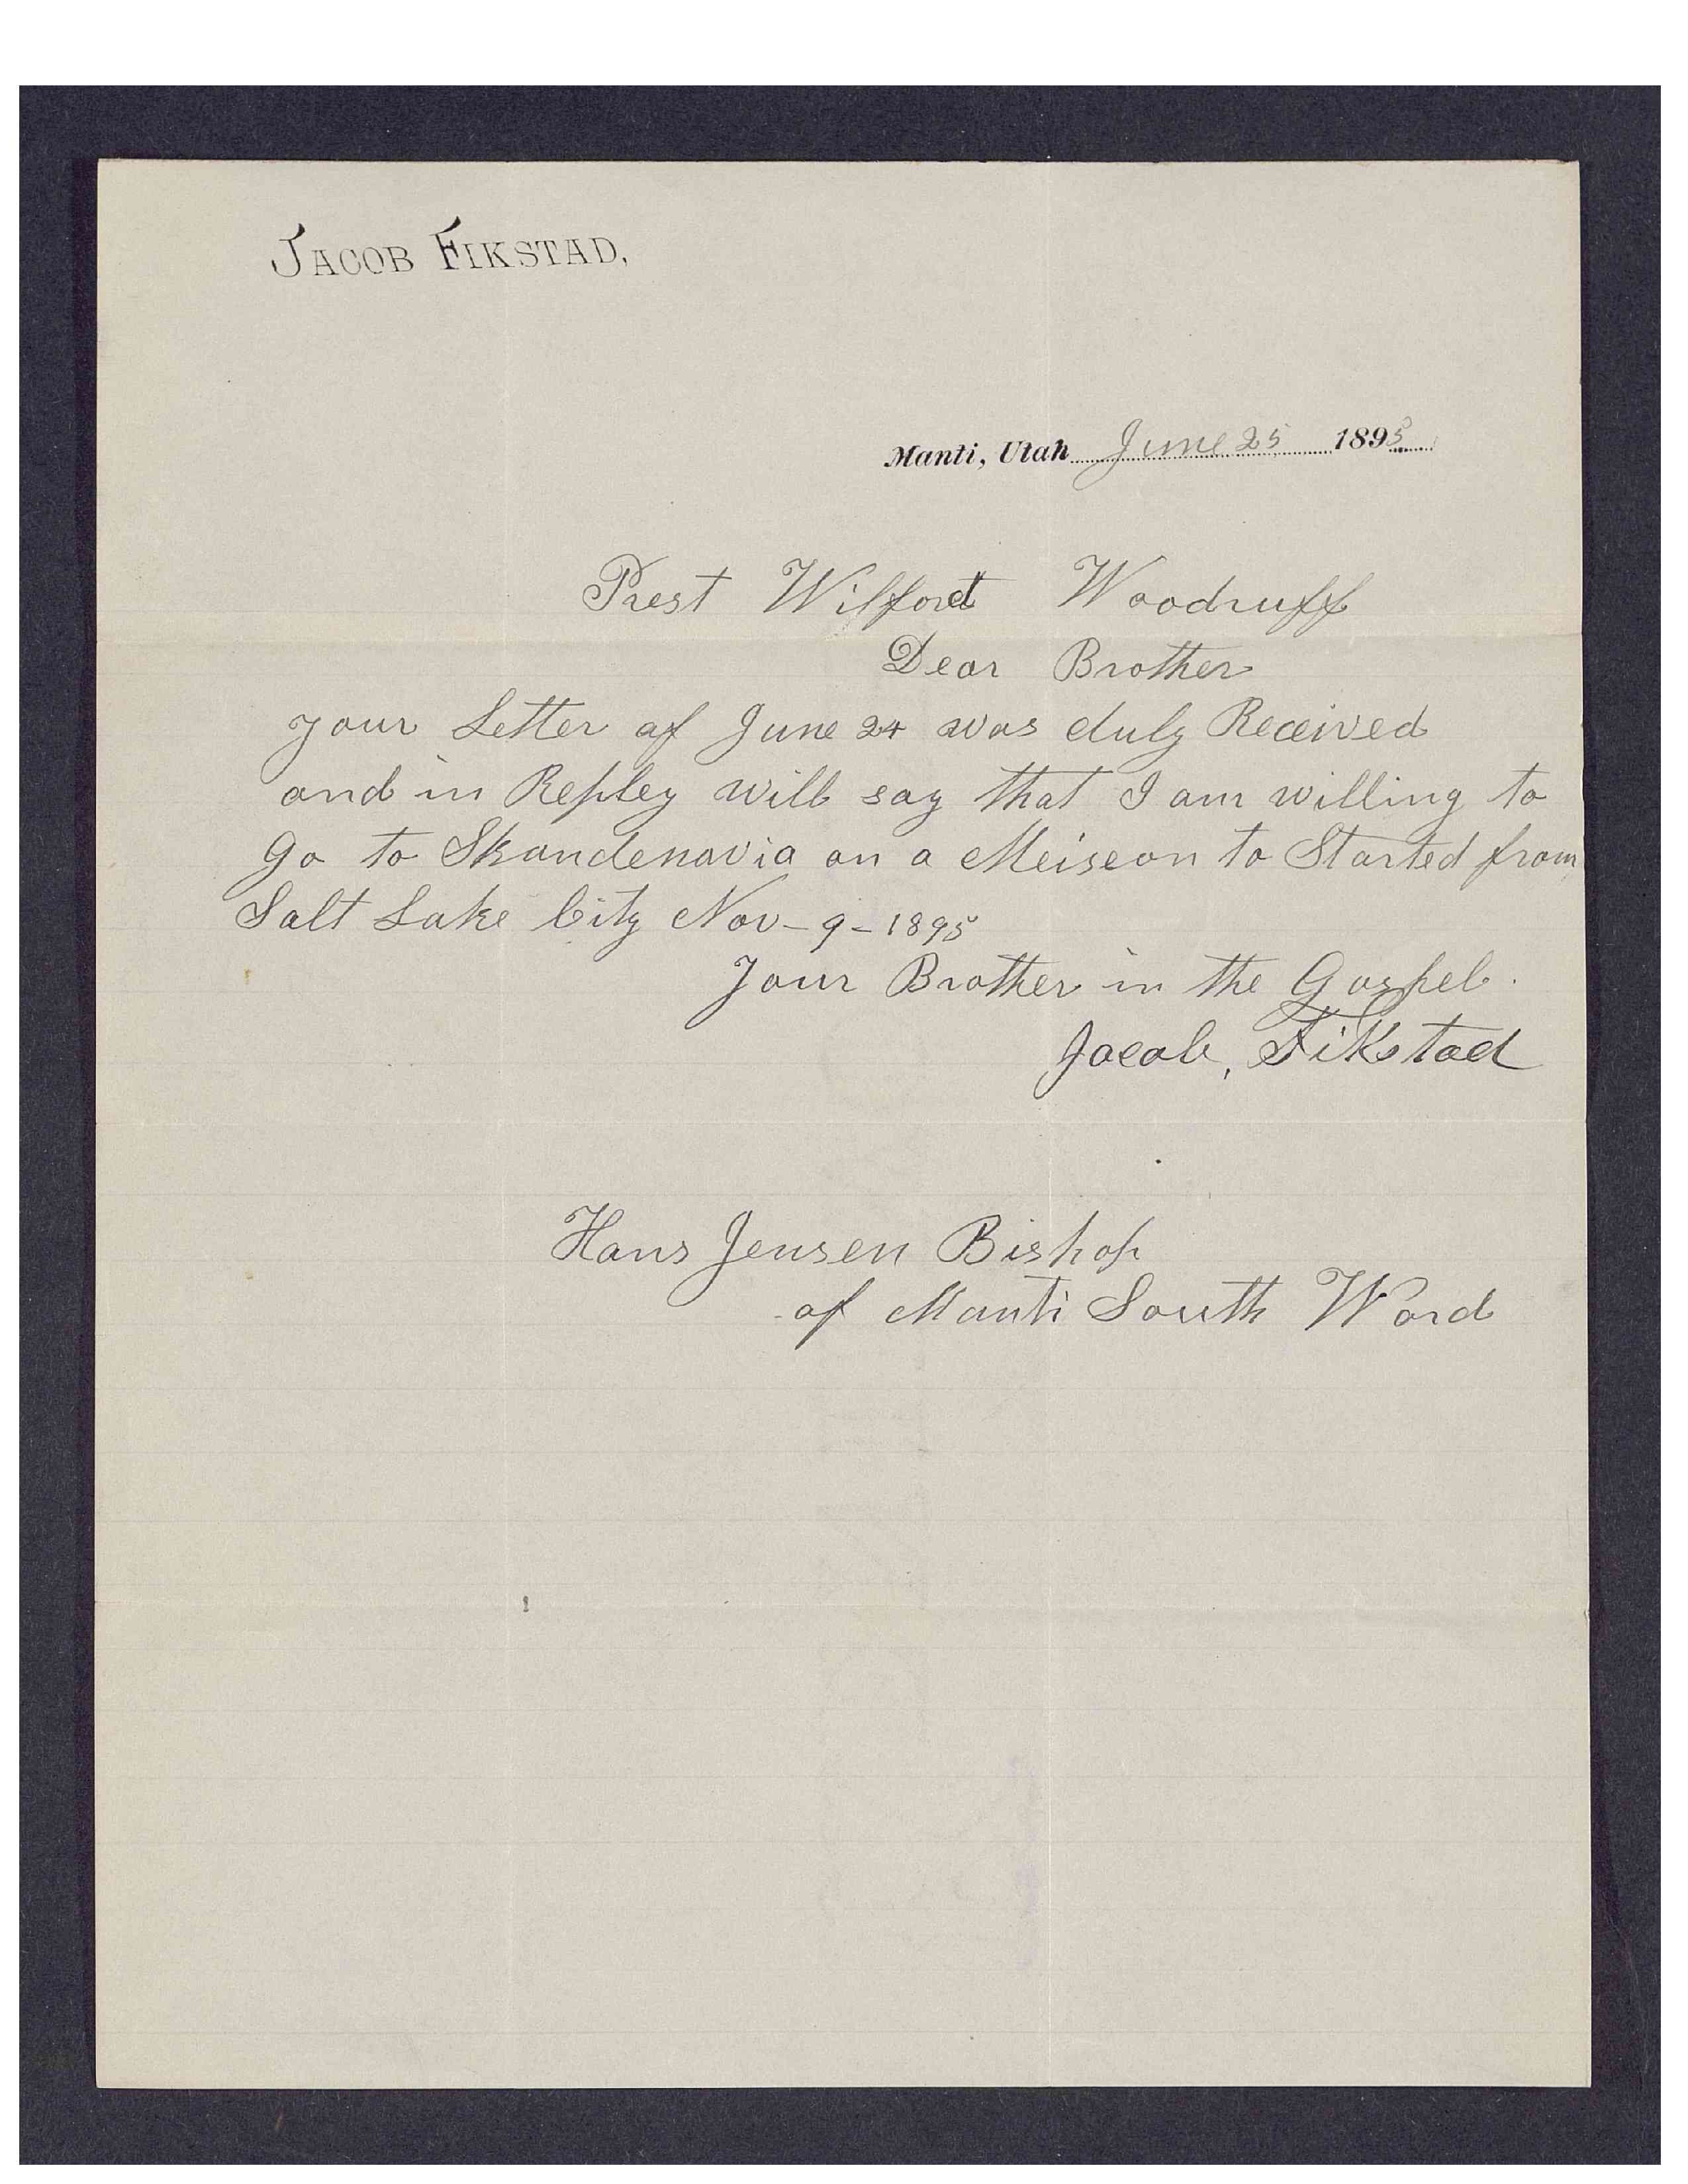 JACOB FIKSTAD,
Manti, Utah June 25 1895
Prest Wilford Woodruff
Dear Brother
your Letter of June 24 was duly Received
and in Repley will say that I am willing to
Go to Skandenavia on a Meiseon to Started from
Salt Lake City Nov-9-1895
Your Brother in the Gospel.
Jacob, Fikstad
Hans Jensen Bishop
of Manti South Ward